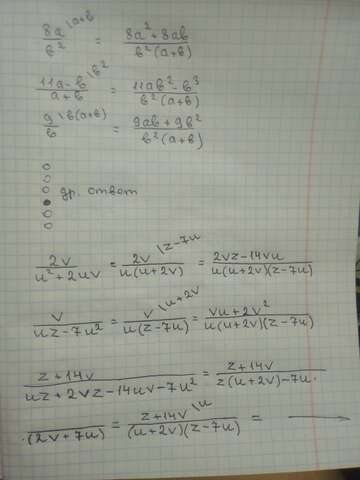 8a \a+b / b² = 8a² + 8ab / b²(a+b)
11a-b \b² / a+b = 11ab² - b³ / b²(a+b)
9 \b(a+b) / b = 9ab + 9b² / b²(a+b)
др. ответ
2v / u² + 2uv = 2v \z-7u / u(u+2v) = 2vz - 14vu / u(u+2v)(z-7u)
v / uz - 7u² = v \u+2v / u(z-7u) = vu + 2v² / u(u+2v)(z-7u)
z+14v / uz + 2vz - 14uv - 7u² = z+14v / z(u+2v) - 7u·
·(2v+7u) = z+14v \u / (u+2v)(z-7u) =